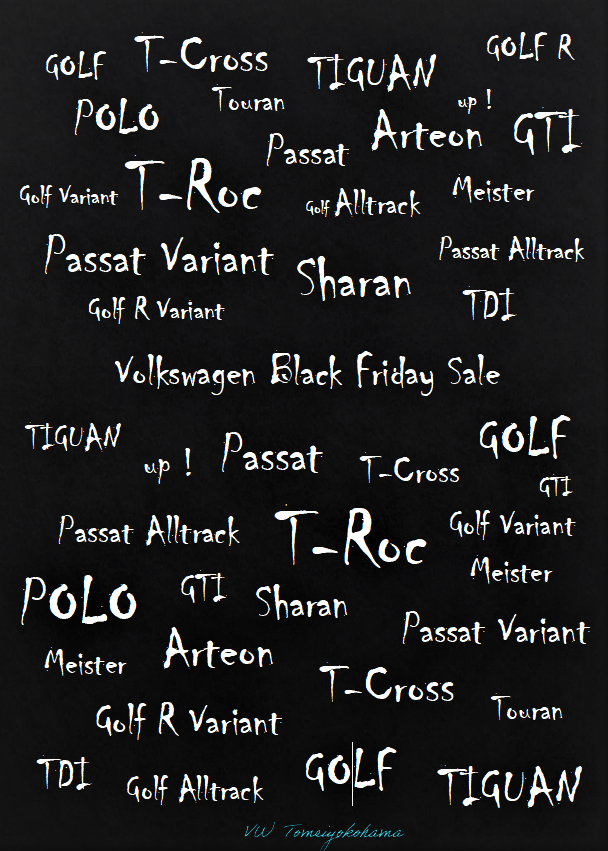 GOLF T-Cross TIGUAN GOLF R
POLO Touran up !
Passat Arteon GTI
Golf Variant T-Roc Golf Alltrack Meister
Passat Variant Sharan Passat Alltrack
Golf R Variant TDI
Volkswagen Black Friday Sale
TIGUAN up ! Passat T-Cross GOLF
GTI
Passat Alltrack T-Roc Golf Variant
Meister
POLO GTI Sharan
Passat Variant
Meister Arteon
T-Cross Touran
Golf R Variant
TDI Golf Alltrack GOLF TIGUAN
VW Tomeiyokohama